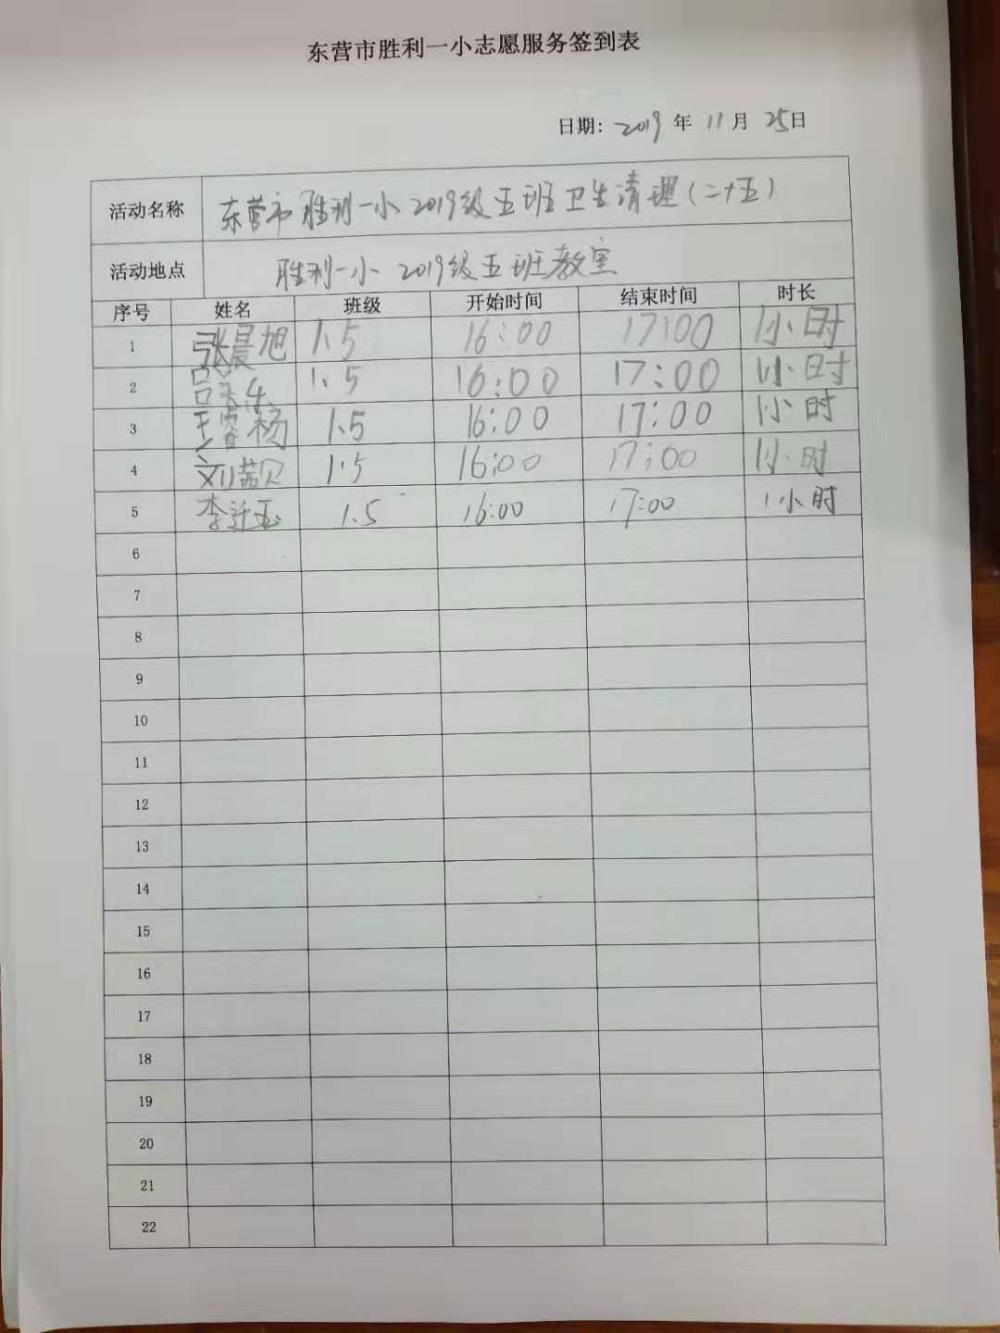 东营市胜利一小志愿服务签到表
日期: 2019 年 11 月 25日
活动名称 东营市胜利一小2019级五班卫生清理(二十五)
活动地点 胜利一小 2019级五班教室
序号 姓名 班级 开始时间 结束时间 时长
1 张晨旭 1.5 16:00 17:00 1小时
2 1.5 16:00 17:00 1小时
3 王睿杨 1.5 16:00 17:00 1小时
4 刘茹贝 1.5 16:00 17:00 1小时
5 李 1.5 16:00 17:00 1小时
6
7
8
9
10
11
12
13
14
15
16
17
18
19
20
21
22